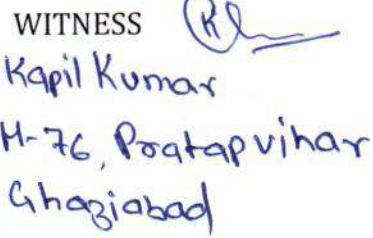 WITNESS
Kapil Kumar
M-76, Pratapvihar
Ghaziabad